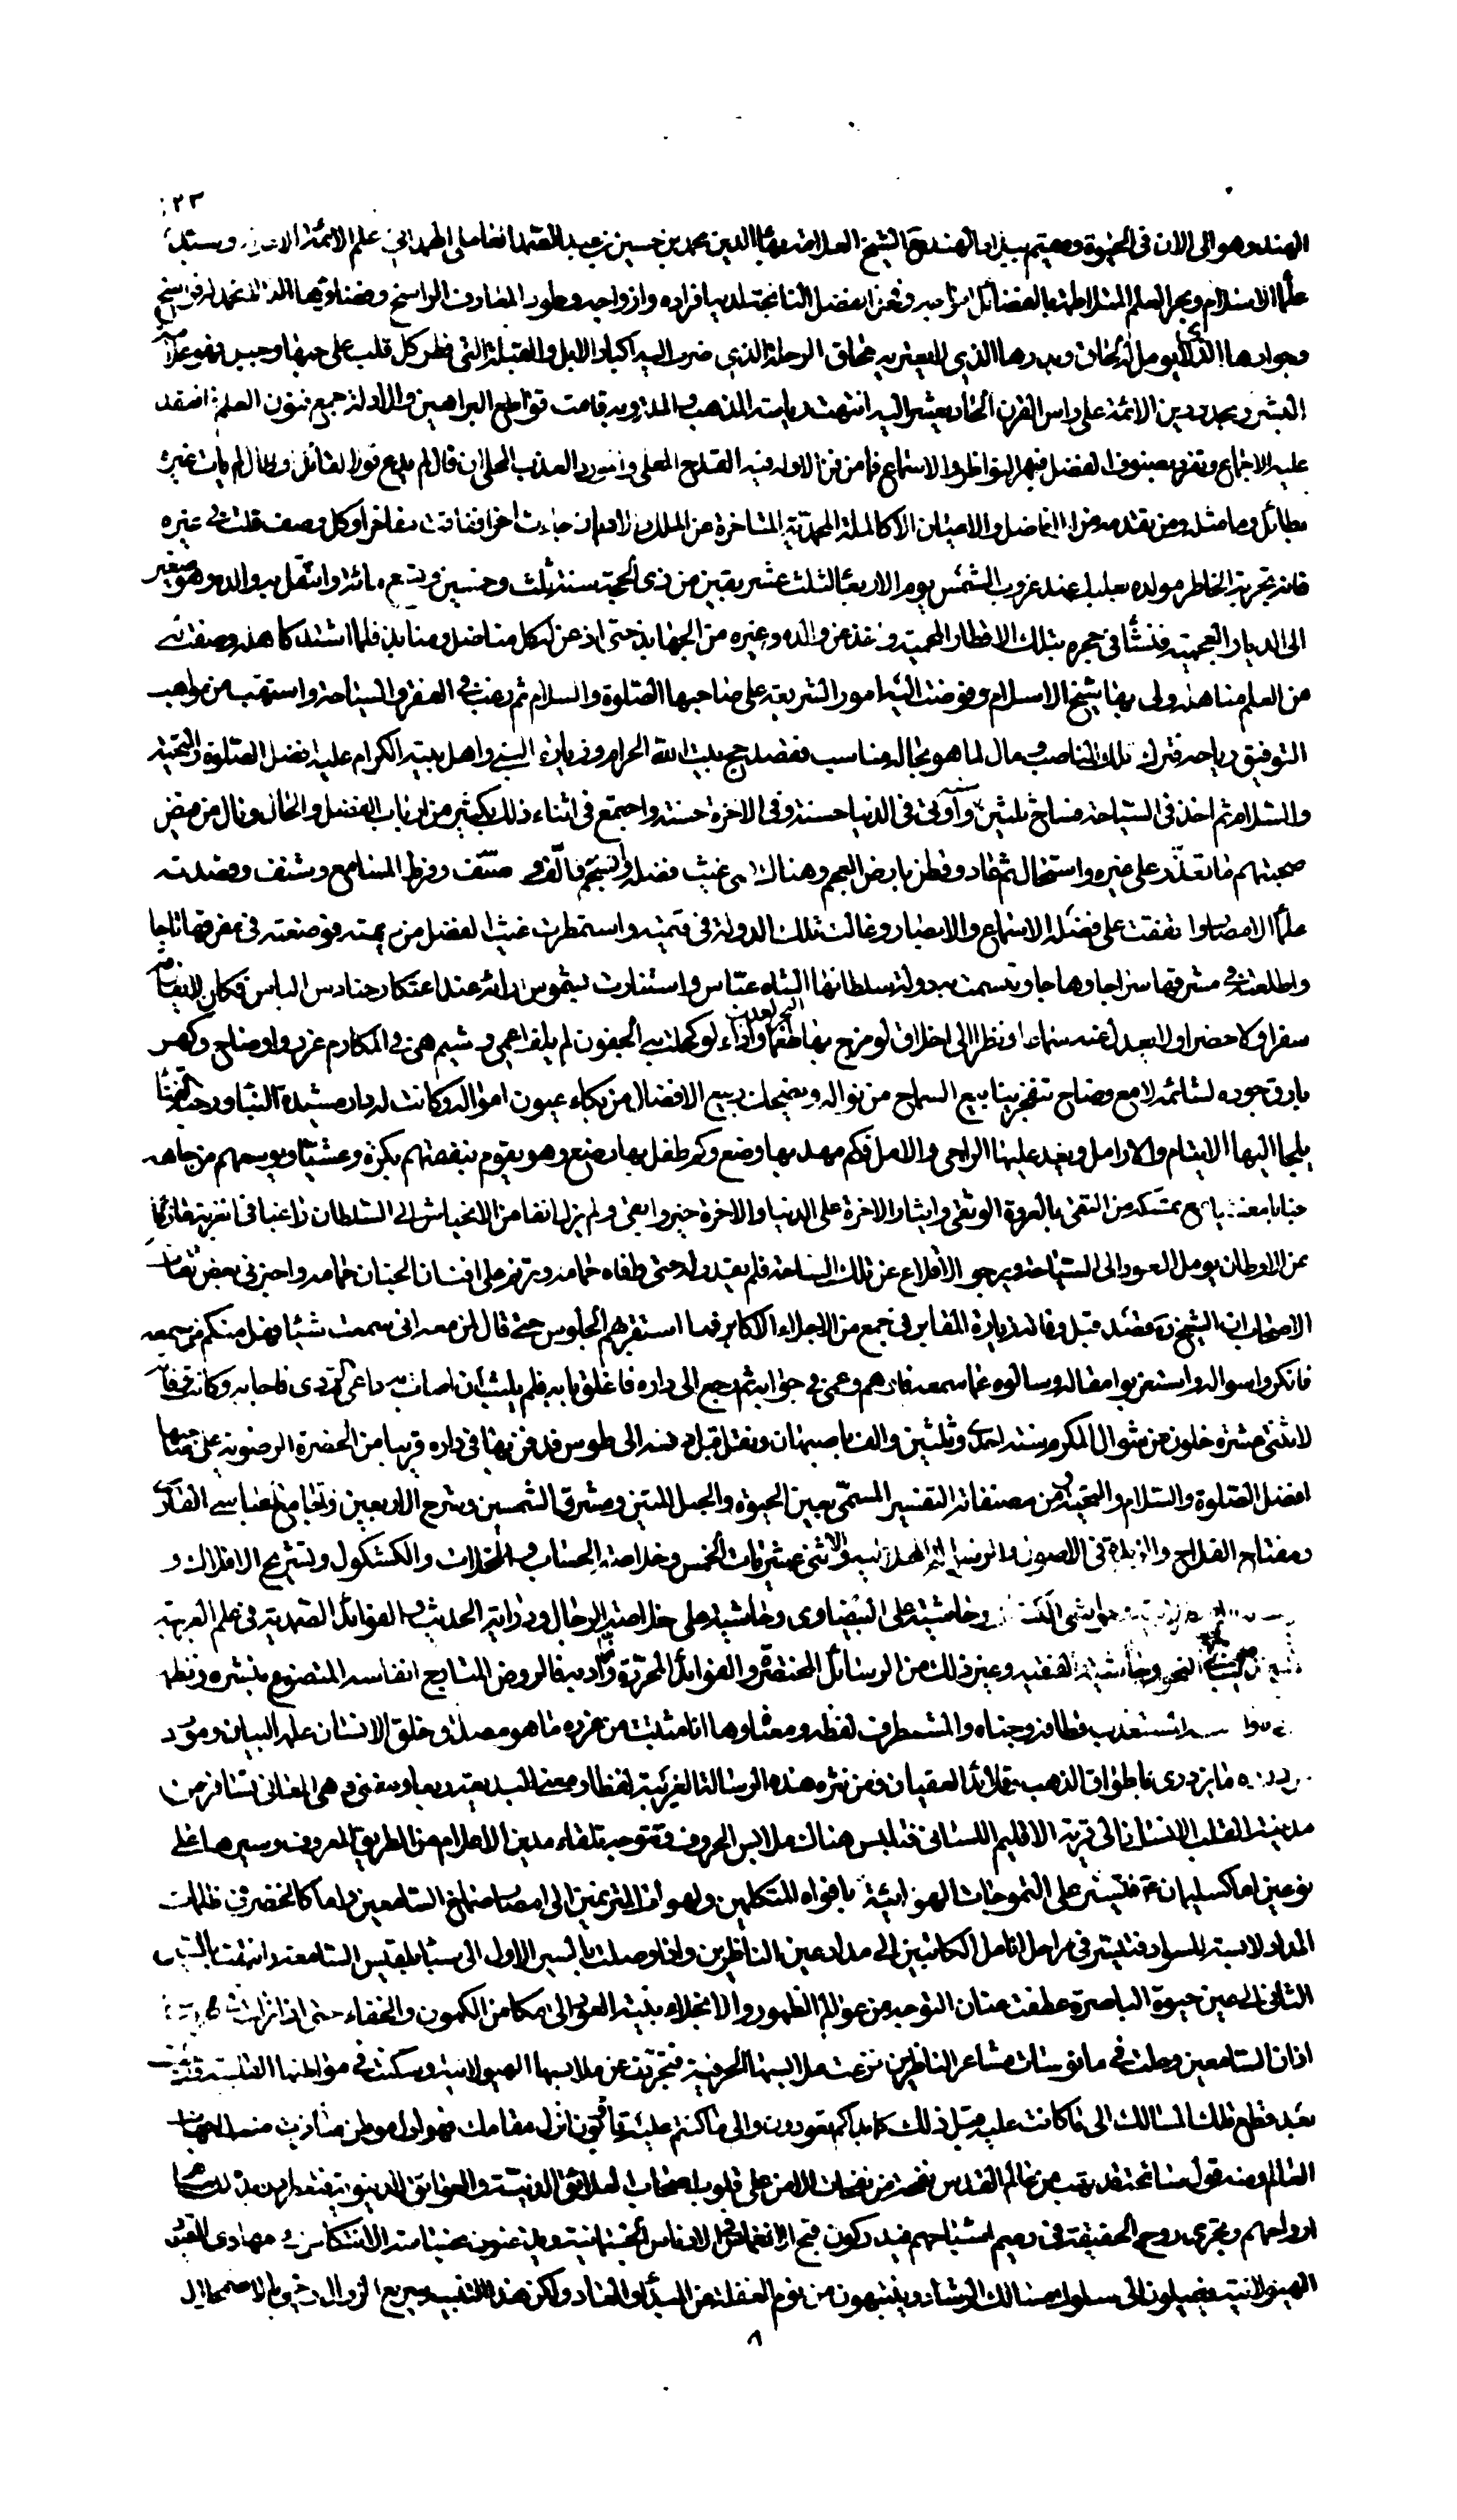 ٢٣
الهند وهو الى الان فى الحيوة ومقيم بديار الهند الشيخ العلامة بهاء الدين محمد بن حسين بن عبد الصمد العاملى الهمدانى علم الائمة وسيد
علماء الاسلام وبحر العلم المتلاطمة بالفضائل امواجه وفحل الفضل الناتجة لديه افراده وازواجه وطود المعارف الراسخ وفضاؤها الذى لا تحد له فراسخ
وجوادها الذى لا يومل له لحاق وبدرها الذى لا يعتريه محاق الرحلة الذى ضربت اليه اكباد الابل والقبلة التى فطر كل قلب على حبها وجبل فهو علامة
البشر ومجدد دين الائمة على راس القرن الحادى عشر اليه انتهت رياسة المذهب والملة وبه قامت قواطع البراهين والادلة جمع فنون العلم فانعقد
عليه الاجماع وتفرد بصنوف الفضل فبهر النواظر والاسماع فما من فن الا وله فيه القدح المعلى والمورد العذب المحلى ان قال لم يدع قولا لقائل او طال لم يات غيره
بطائل وما مثله ومن تقدمه من الافاضل والاعيان الا كالملة المحمدية المتاخرة عن الملل والاديان جاءت اخرا ففاقت مفاخرا وكل وصف قلت فى غيره
فانه تجربة الخاطر مولده ببعلبك عند غروب الشمس يوم الاربعاء لثلث عشر بقين من ذى الحجة سنة ثلث وخمسين وتسعمائة وانتقل به والده وهو صغير
الى الديار العجمية فنشأ فى حجره بتلك الاقطار المحمية واخذ عن والده وغيره من الجهابذ حتى اذعن له كل مناضل ومنابذ فلما اشتد كاهله وصفت له
من العلم مناهله ولى بها شيخ الاسلام وفوضت اليه امور الشريعة على صاحبها الصلوة والسلام ثم رغب فى الفقر والسياحة واستهب من مواهب
التوفيق رياحه فترك تلك المناصب ومال لما هو بحاله مناسب فقصد حج بيت الله الحرام وزيارة النبى واهل بيته الكرام عليه افضل الصلوة والتحية
والسلام ثم اخذ فى السياحة فساح ثلثين سنة واوتى فى الدنيا حسنة وفى الاخرة حسنة واجتمع فى اثناء ذلك بكثير من ارباب الفضل والحال ونال من فيض
صحبتهم ما تعذر على غيره واستحال ثم عاد وقطن بارض العجم وهناك همى غيث فضله وانسجم فالف وصنف وقرط المسامع وشنف وقصدته
علماء الامصار واتفقت على فضله الاسماع والابصار وغالت تلك الدولة فى قيمته واستمطرت غيث الفضل من ديمته فوضعته فى مفرقها تاجا
واطلعته فى مشرقها سراجا وهاجا وتبسمت به دولة سلطانها الشاه عباس واستنارت بشموس رائه عند اعتكار حنادس الباس فكان لا يفارقه
سفرا ولا حضرا ولا يعدل عنه سماعا ونظرا الى اخلاق لو مزج بها البحر لعذب طعما واراء لو كحلت بها الجفون لم يلف اعمى وشيم هى فى المكارم غرر واوضاح وكرم
بارق جوده لشائمه لامع وضاح تتفجر ينابيع السماح من نواله ويضحك ربيع الافضال من بكاء عيون امواله وكانت له دار مشيدة البناء رحبة الفناء
يلجا اليها الايتام والارامل ويغد عليها الراجى والامل فكم مهد بها وضع وكم طفل بها رضع وهو يقوم بنفقتهم بكرة وعشيا ويوسعهم من جاهه
جنابا مغشيا مع تمسكه من التقى بالعروة الوثقى وايثار الاخرة على الدنيا والاخرة خير وابقى ولم يزل انفا من الانحياش الى السلطان راغبا فى الغربة عازفا
عن الاوطان يومل العود الى السياحة ويرجو الاقلاع عن تلك الساحة فلم يقدر له حتى وافاه حمامه وترنم على افنان الجنان حمامه واخبرنى بعض ثقات
الاصحاب ان الشيخ ره قصد قبل وفاته زيارة المقابر فى جمع من الاجلاء الاكابر فما استقر بهم الجلوس حتى قال لمن معه انى سمعت شيئا فهل منكم من سمعه
فانكروا سواله واستغربوا مقاله وسالوه عما سمعه فاوهم وعمى فى جوابه ثم رجع الى داره فاغلق بابه فلم يلبث ان اهاب به داعى الردى فاجابه وكانت وفاته
لاثنتى عشرة خلون من شوال المكرم سنة احدى وثلثين والف باصبهان ونقل قبل دفنه الى طوس فدفن بها فى داره قريبا من الحضرة الرضوية على صاحبها
افضل الصلوة والسلام والتحية ومن مصنفاته التفسير المسمى بعين الحيوة والحبل المتين ومشرق الشمسين وشرح الاربعين والجامع العباسى الفارسى
ومفتاح الفلاح والزبدة فى الاصول والرسالة الهلالية والاثنى عشريات الخمس وخلاصة الحساب والمخلاة والكشكول وتشريح الافلاك و
حواشى الكشاف وحاشية على البيضاوى وحاشية على خلاصة الرجال ودراية الحديث والفوائد الصمدية فى علم العربية
النحو وحاشية الفقيه وغير ذلك من الرسائل المختصرة والفوائد المحررة واما ادبه فالروض المتارج انفاسه المتضوع بنثره ونظمه
المستعذب قطافه وجناه والمستظرف لفظه ومعناه وها انا مثبت من غرره ما هو مصداق خلق الانسان علمه البيان ومورد
ما يزدرى باطواق الذهب وقلائد العقيان فمن نثره هذه الرسالة الغريبة لفظا ومعنى البديعة ربعا ومغنى وهى المعانى تسافر من
مدينة القلب الانسانى الى قرية الاقليم اللسانى فتلبس هناك ملابس الحروف وتتوجه تلقاء مدين الاعلام من الطريق المعروف وسيرها على
نوعين اما كسليمان ع فتسير على التموجات الهوائية بافواه المتكلمين ولهوات المترنمين الى امصار صماخ السامعين واما كالخضر فى ظلمات
المداد لابسة للسواد فتسير فى مراحل انامل الكاتبين الى مداد عين الناظرين واذا وصلت بالسير الاول الى سبا بلقيس السامعة وانتهت بالسير
الثانى الى عين حيوة الباصرة عطفت عنان التوجه من عوالم الظهور والانجلاء بنية العود الى مكامن الكمون والخفاء حتى اذا نزلت
اذان السامعين وحلت فى مانوسات مشاعر الناظرين نزعت ملابسها الحرفية فتجردت عن ملابسها الهيولانية وسكنت فى مواطنها القلبية
بعد قطع تلك المسالك الى ما كانت عليه قبل ذلك كما بداكم تعودون والى ما كنتم عليه
العالم ومنه قول سانحة قد تهب من عالم القدس نفحة من نفحات الانس على قلوب اصحاب العلائق الدنية والعوائق الدنيوية فتعطر بذلك مشام
ارواحهم وتجرى روح الحقيقة فى رميم اشباحهم فيدركون قبح الانغماس فى الادناس الجسمانية ويذعنون بخساسة الانتكاس فى مهاوى القيود
الهيولانية فيميلون الى سلوك مسالك الرشاد وينتبهون من نوم الغفلة عن المبدأ والمعاد ولكن هذا التنبيه سريع الزوال وحى الاضمحلال
٨